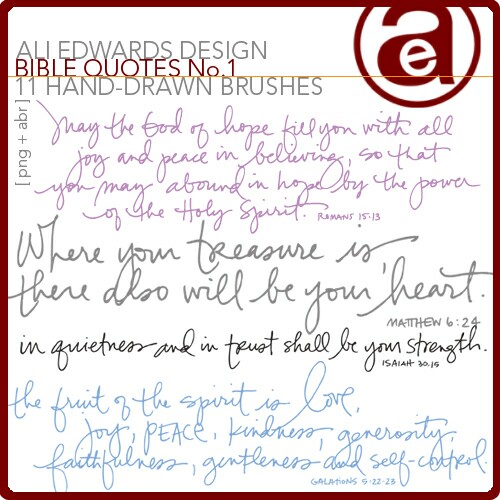 ALI EDWARDS DESIGN
BIBLE QUOTES No.1
11 HAND-DRAWN BRUSHES
[png + abr]
ae
may the God of hope fill you with all
joy and peace in believing, so that
you may abound in hope by the power
of the Holy Spirit. ROMANS 15:13
Where your treasure is,
there also will be your heart.
MATTHEW 6:24
in quietness and in trust shall be your strength.
ISAIAH 30.15
the fruit of the spirit is love,
joy, PEACE, kindness, generosity,
faithfulness, gentleness and self-control.
GALATIONS 5:22-23